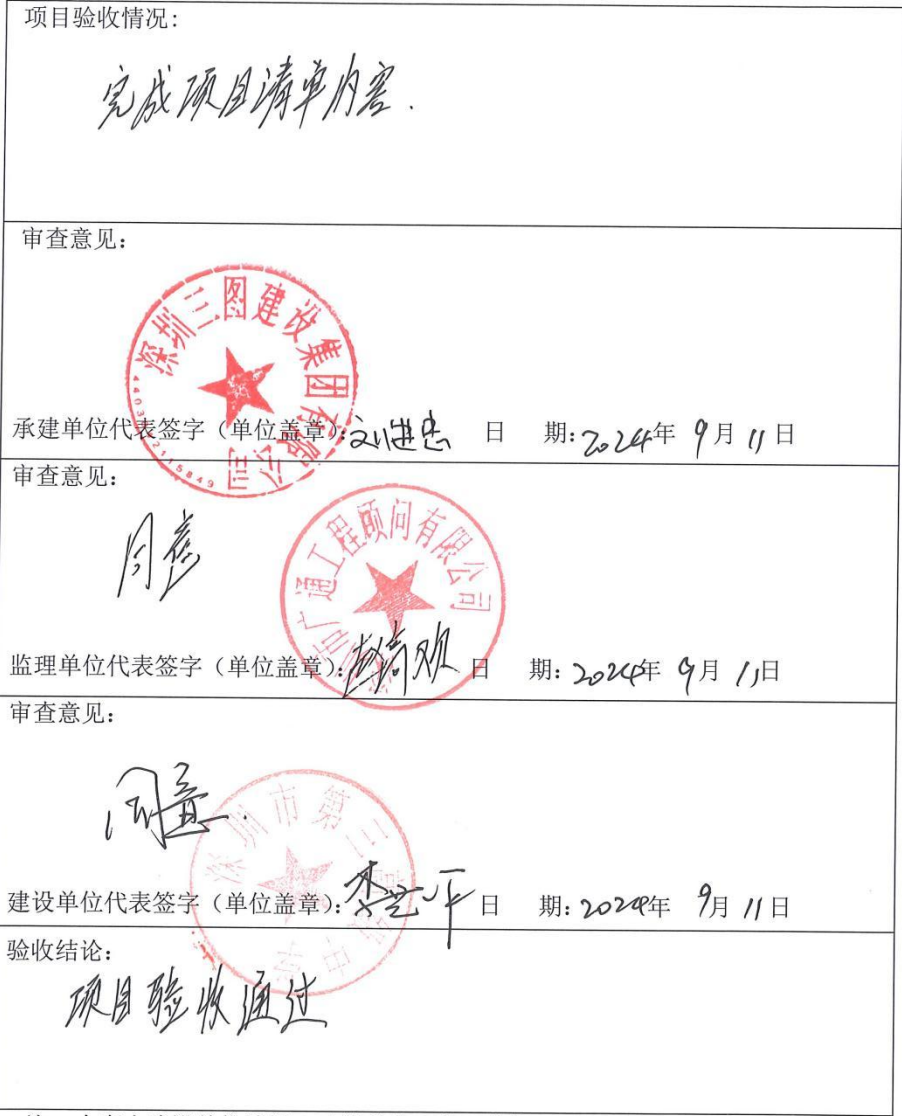 项目验收情况:
完成项目清单内容.
审查意见:
深圳三图建设集团有限公司
承建单位代表签字（单位盖章）: 日 期: 2024年 9月 11日
审查意见:
同意
市广通工程顾问有限公司
监理单位代表签字（单位盖章）: 日 期: 2024年 9月 11日
审查意见:
同意.
深圳市第三高级中学
建设单位代表签字（单位盖章）: 日 期: 2024年 9月 11日
验收结论:
项目验收通过